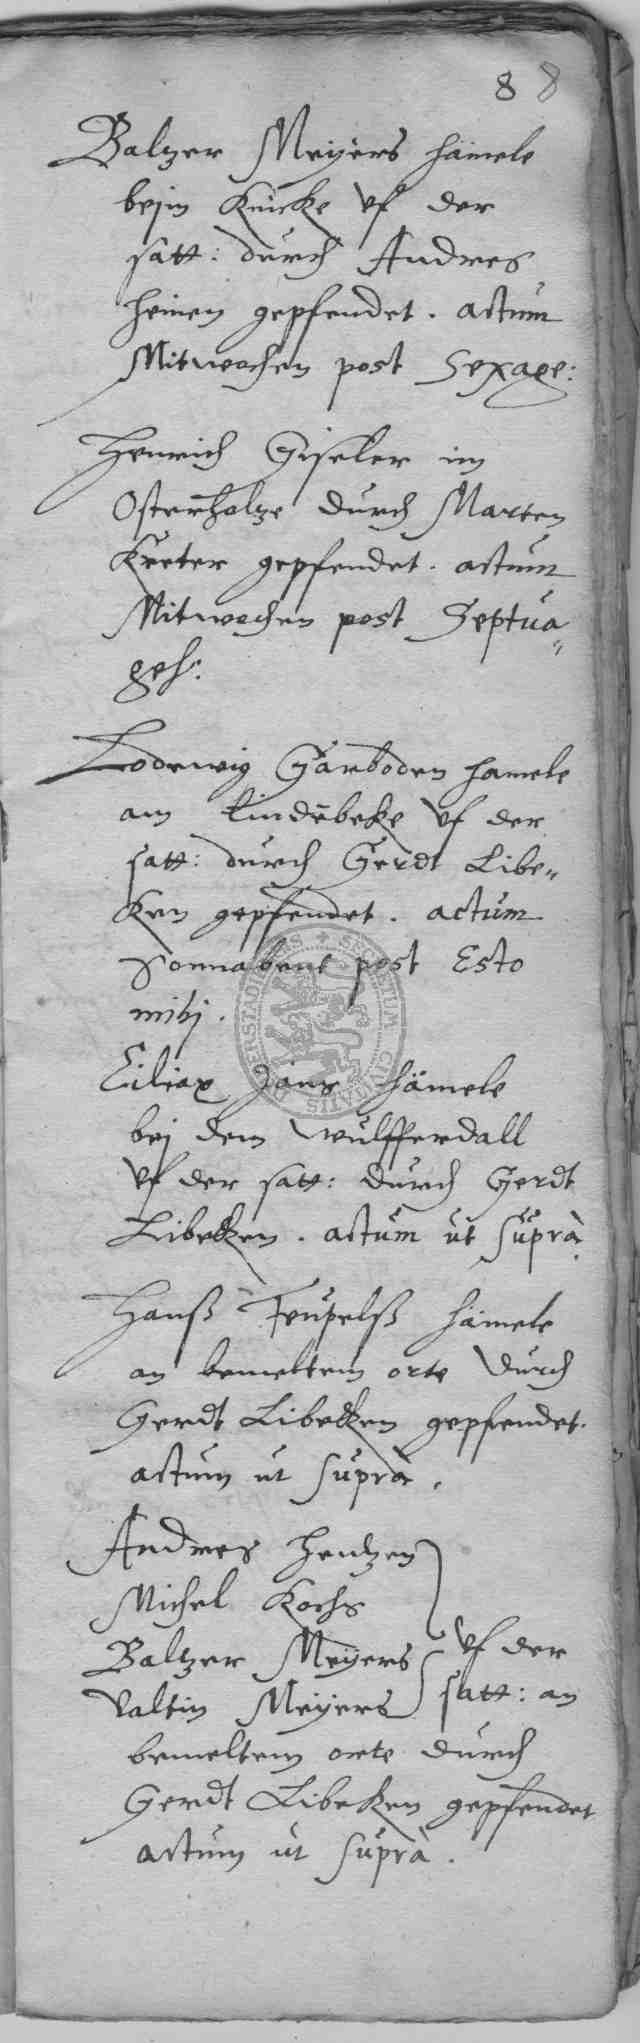 88
Baltzer Meÿers hämele
beÿm Knicke vf der
satt: durch Andres
heinen gepfendet. actum
Mitwochen post Sexage:
Henrich Giseler im
Osterholze durch Marten
Kreter gepfendet. actum
Mitwochen post Septua„
ges:
Lodewig Garboden hamele
am Lindēbeke vf der
satt: durch Gerdt Libe„
ken gepfendet. actum
Sonnabent post Esto
mihj.
Ciliax Jans hämele
bej dem Wulfferdall
vf der satt: durch Gerdt
Libecken. actum ut suprà.
Hanß Teupelß hämele
an bemeltem orte durch
Gerdt Libecken gepfendet.
actum ut suprà.
Andres Hentzen
Michel Kochs
Baltzer Meÿers vf der
Valtin Meÿers satt: an
bemeltem orte durch
Gerdt Libeken gepfendet
actum ut suprà.
SECRETUM CIVITATIS